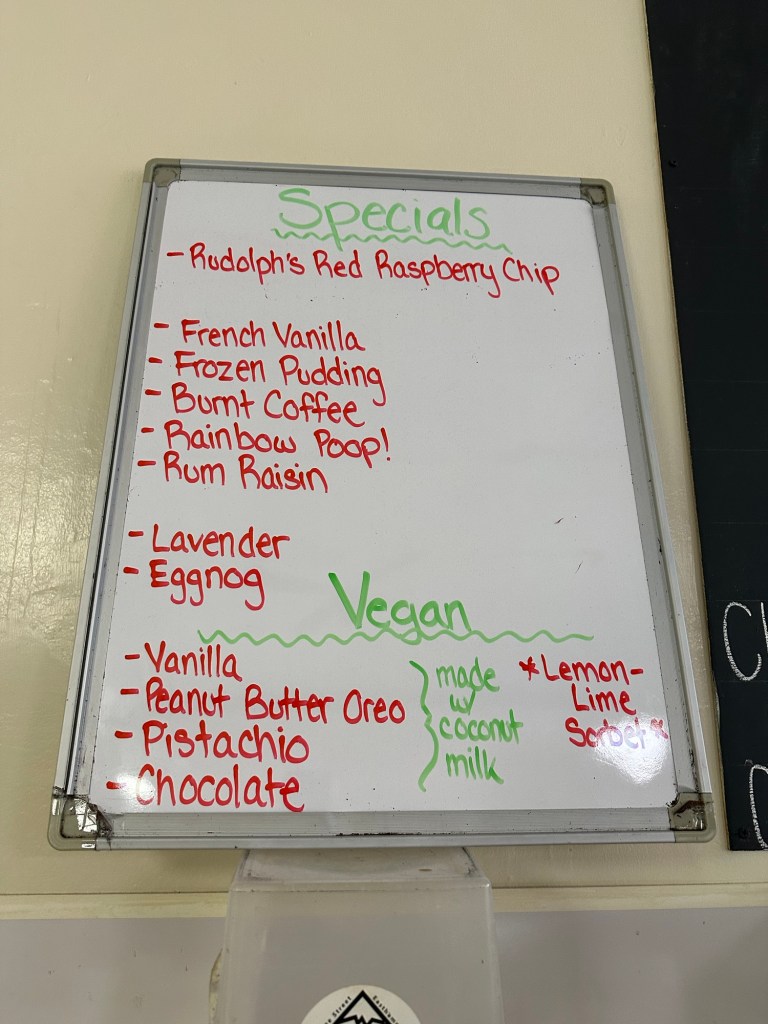 Specials
- Rudolph's Red Raspberry Chip
- French Vanilla
- Frozen Pudding
- Burnt Coffee
- Rainbow Poop!
- Rum Raisin
- Lavender
- Eggnog
Vegan
- Vanilla
- Peanut Butter Oreo
- Pistachio
- Chocolate
made
w/
coconut
milk
*Lemon-
Lime
Sorbet*